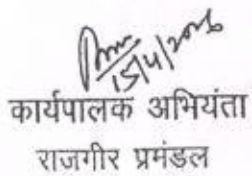 15/4/2026
कार्यपालक अभियंता
राजगीर प्रमंडल